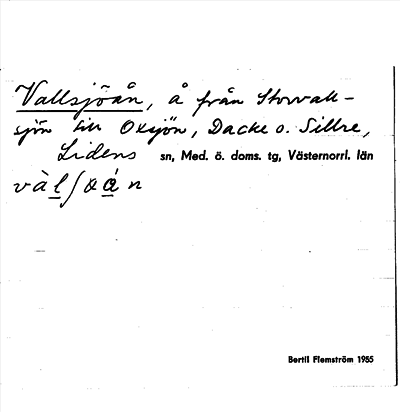 Vallsjöån, å från Storvall-
sjön till Oxsjön, Dacke o. Sillre,
Lidens sn, Med. ö. doms. tg, Västernorrl. län
Bertil Flemström 1955